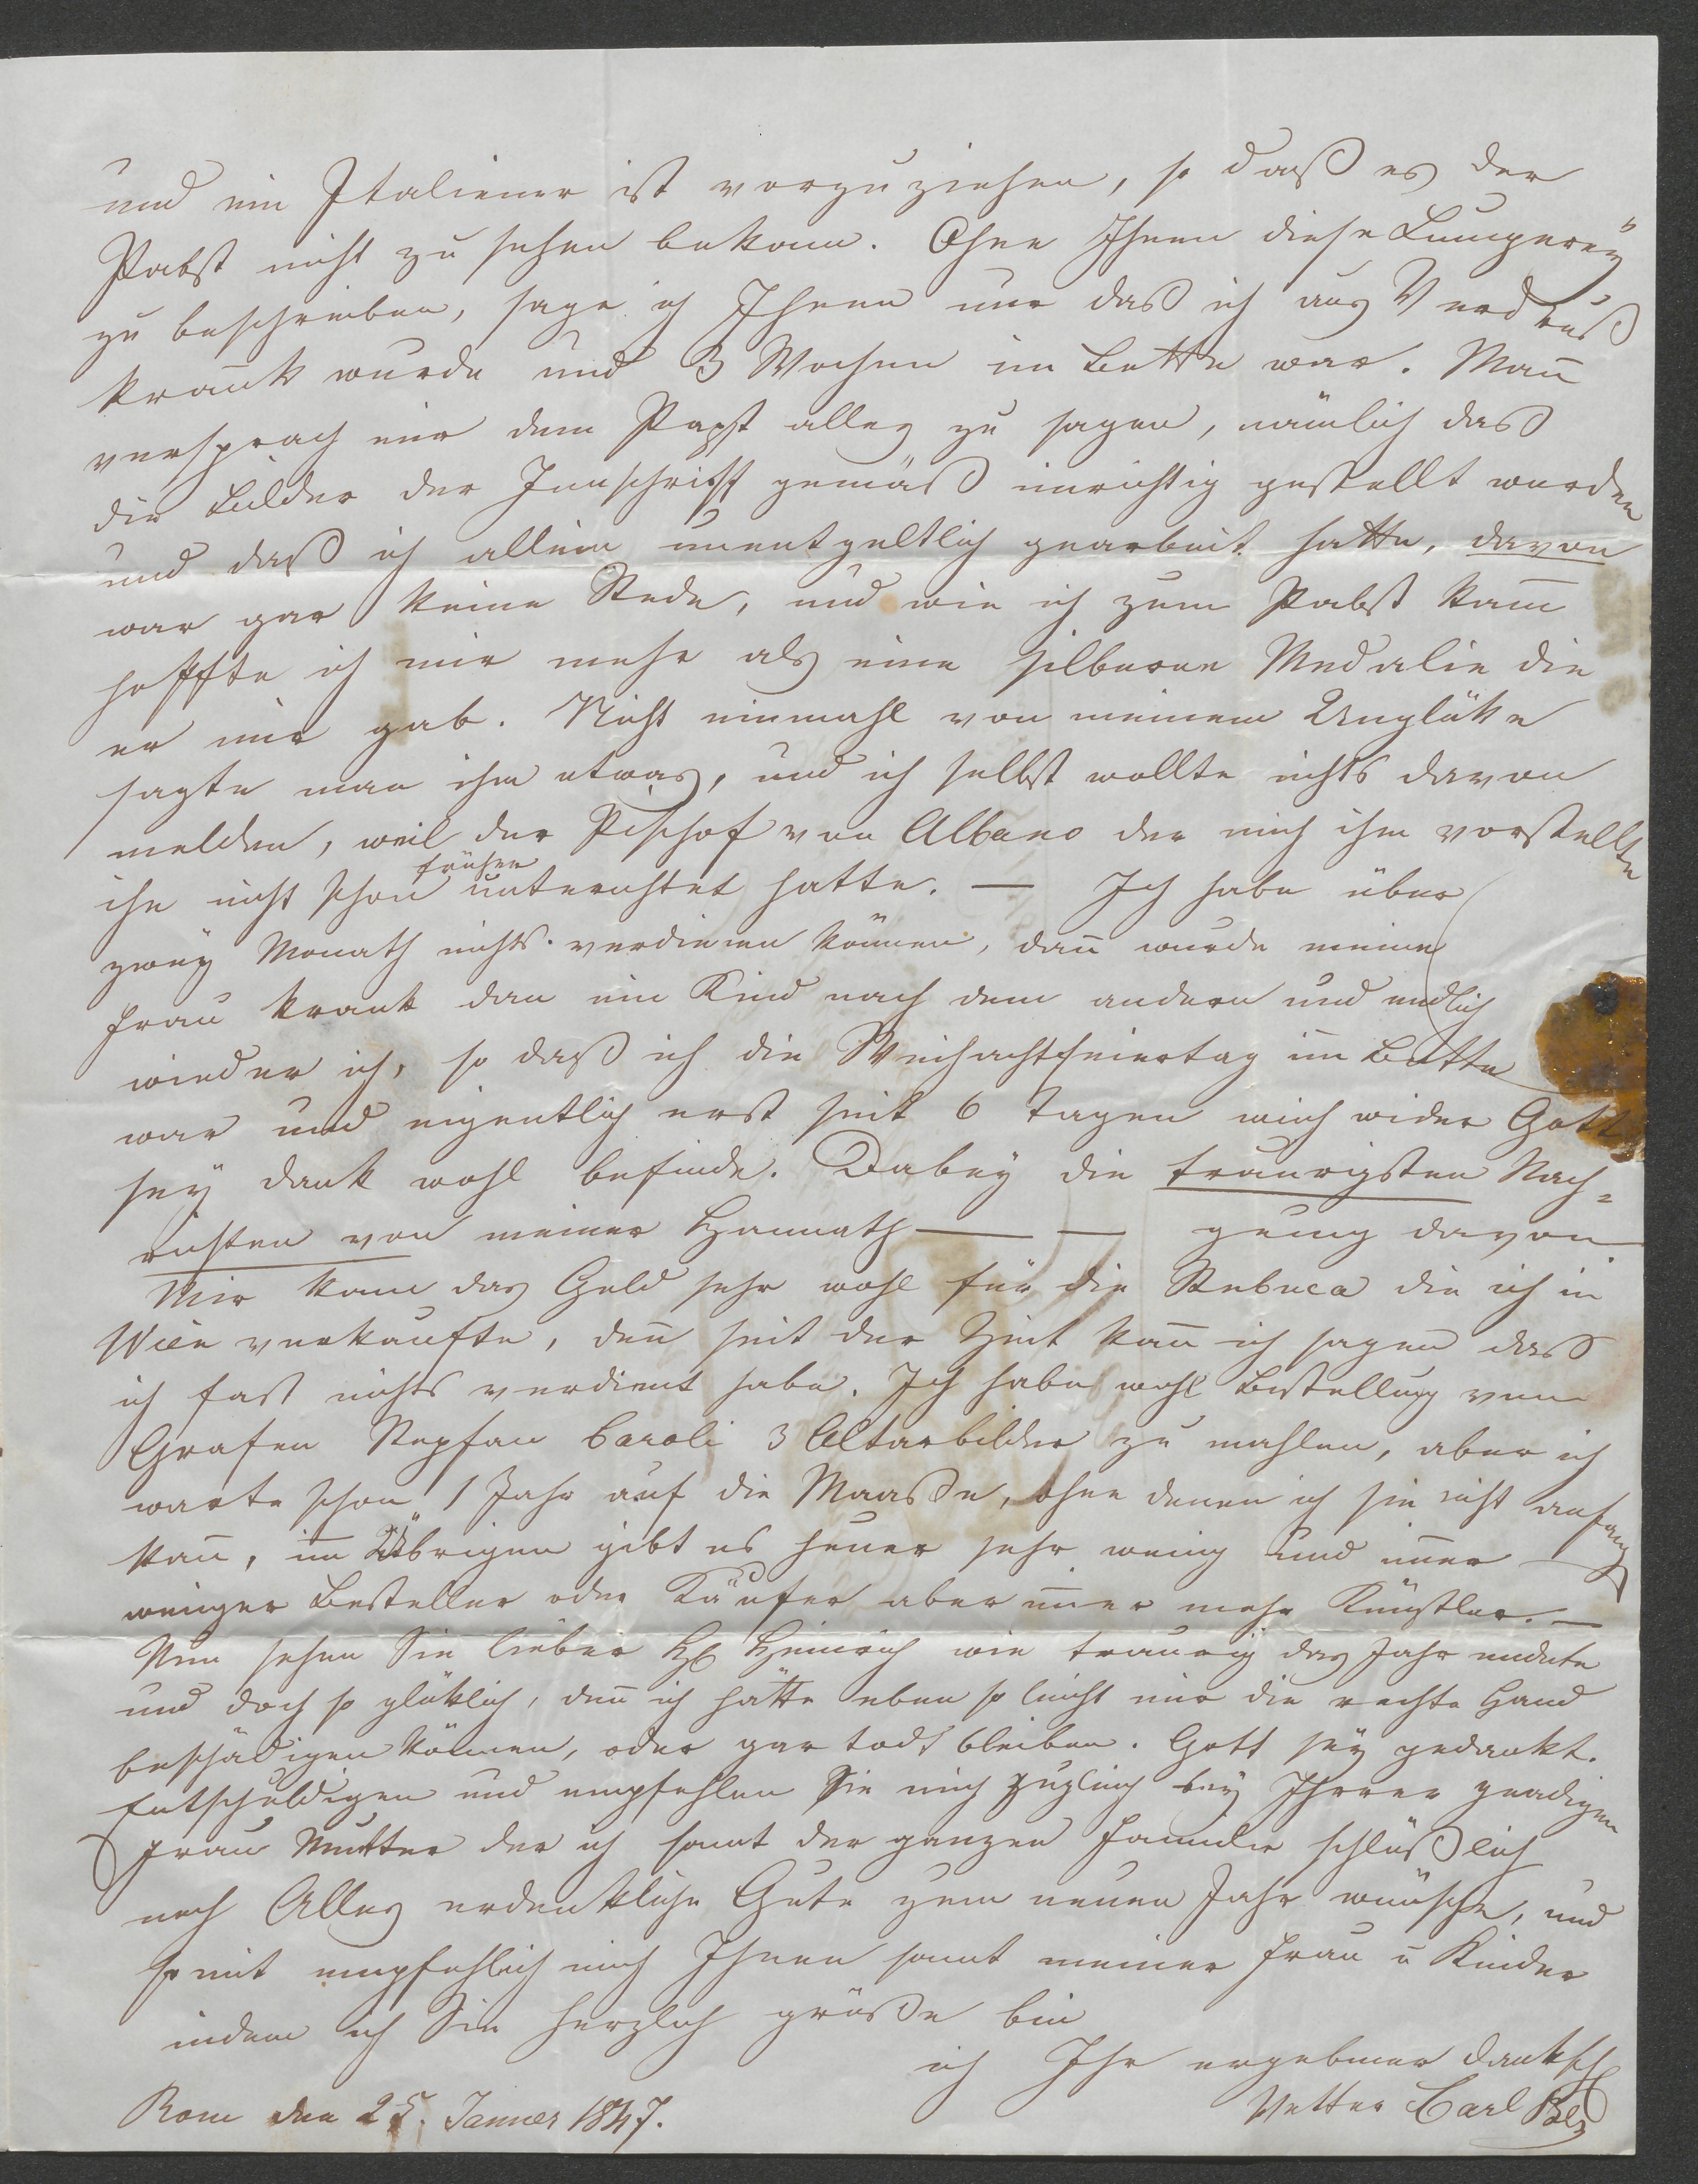 und ein Italiener ist vorzuziehen, so daß es der
Pabst nicht zu sehen bekam. Ohne Ihnen diese Lumperey
zu beschreiben, sage ich Ihnen nur daß ich aus Verdruß
krank wurde und 3 Wochen im Bette war. Man̄
versprach mir dem Papst alles zu sagen, nämlich daß
die Bilder der Innschrift gemäß unrichtig gestellt wurden
und daß ich allein unentgeltlich gearbeit hatte, davon
war gar keine Rede, und wie ich zum Pabst kam̄
hoffte ich mir mehr als eine silberne Medalie die
er mir gab. Nicht einmahl von meinem Unglüke
sagte man ihm etwas, und ich selbst wollte nichts davon
melden, weil der Pischof von Albano der mich ihm vorstellte
ihn nicht schon früher unterichtet hatte. — Ich habe über
zwey Monath nichts verdienen können, dan̄ wurde meine
Frau krank dan ein Kind nach dem andern und endlich
wieder ich, so daß ich die Weihachtfeiertag im Bette
war und eigentlich erst seit 6 Tagen mich wider Gott
sey dank wohl befinde. Dabey die traurigsten Nach=
richten von meiner Hannath — — genug davon.
Mir kam das Geld sehr wohl für die Rebeca die ich in
Wien verkaufte, den̄ seit der Zeit kan̄ ich sagen daß
ich fast nichts verdient habe. Ich habe wohl Bestellung vom
Grafen Stepfan Caroli 3 Altarbilder zu mahlen, aber ich
warte schon 1 Jahr auf die Maaße, ohne denen ich sie nicht anfangen
kan̄, im Übrigen gibt es heuer sehr wenig und im̄er
weniger Besteller oder Käufer aber im̄er mehr Künstler. —
Nun sehen Sie lieber H Heinrich wie traurig das Jahr endete
und doch so glüklich, den̄ ich hätte eben so leicht mir die rechte Hand
beschädigen können, oder gar todt bleiben. Gott sey gedankt.
Entschuldigen und empfehlen Sie mich zugleich bey Ihrer gnadigen
Frau Mutter der ich samt der ganzen Familie schlüßlich
noch Alles erdenkliche Gute zum neuen Jahr wünsche, und
somit empfehlich mich Ihnen samt meiner Frau u Kinder
indem ich Sie herzlich grüße bin
ich Ihr ergebener
Vetter Carl
Rom den 25. Janner 1847.